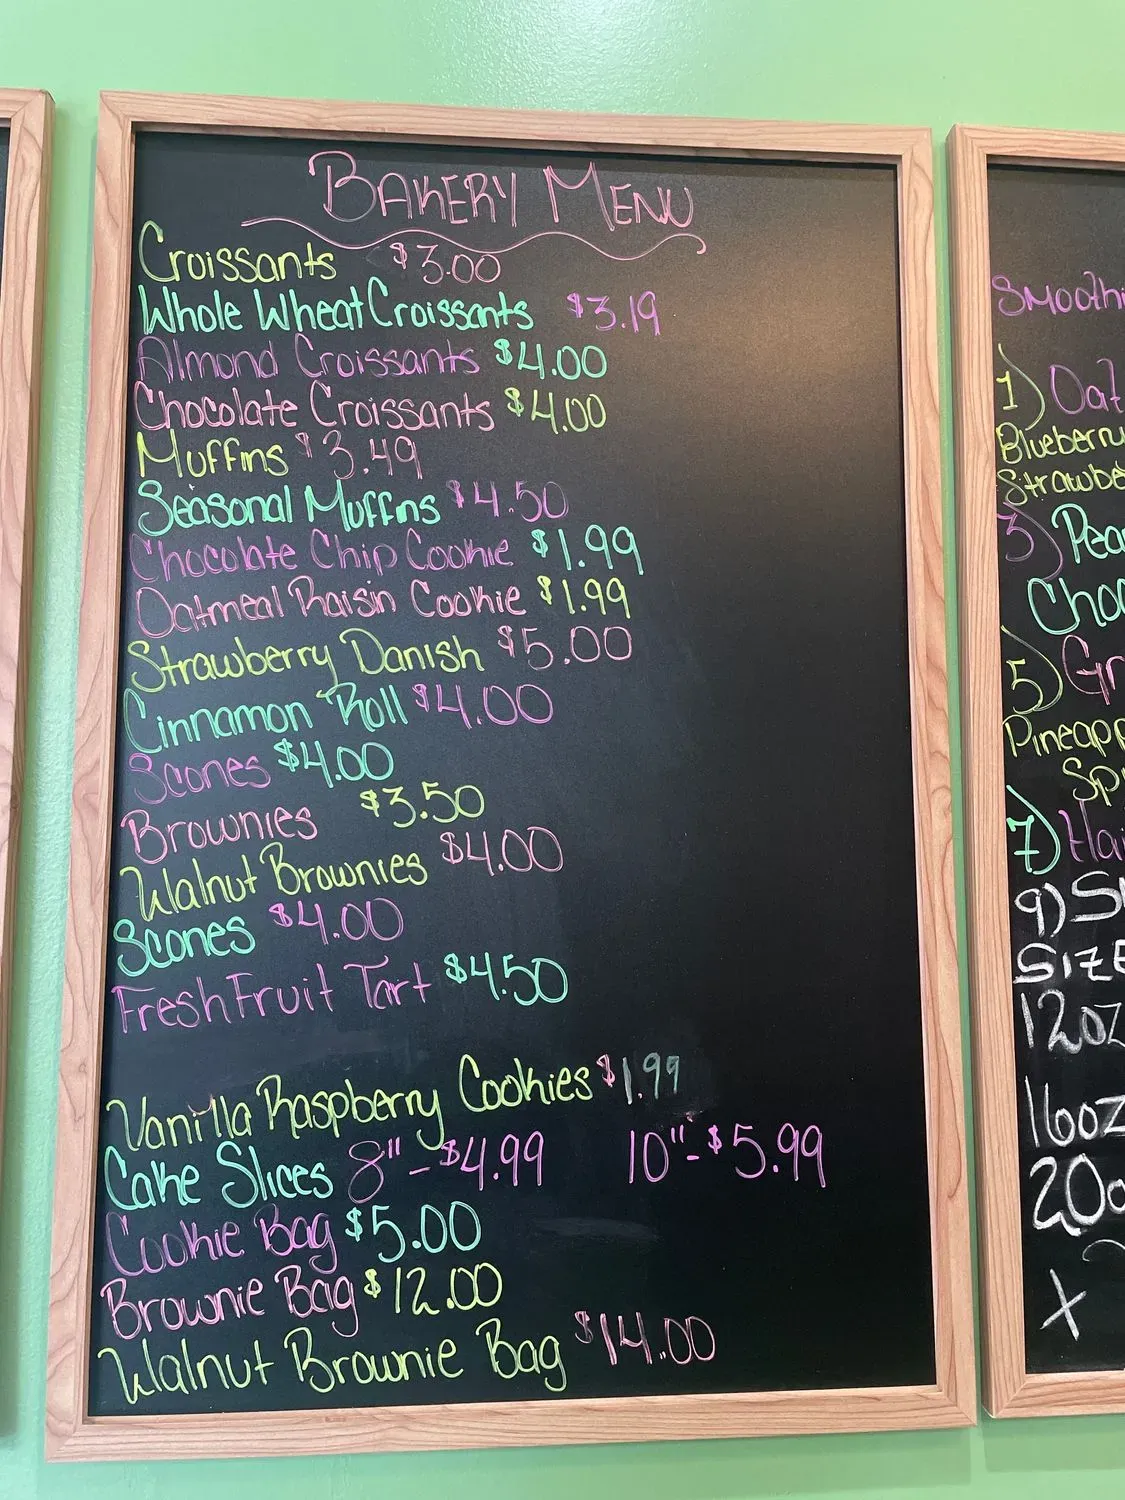 BAKERY MENU
Croissants $3.00
Whole Wheat Croissants $3.19
Almond Croissants $4.00
Chocolate Croissants $4.00
Muffins $3.49
Seasonal Muffins $4.50
Chocolate Chip Cookie $1.99
Oatmeal Raisin Cookie $1.99
Strawberry Danish $5.00
Cinnamon Roll $4.00
Scones $4.00
Brownies $3.50
Walnut Brownies $4.00
Scones $4.00
Fresh Fruit Tart $4.50
Vanilla Raspberry Cookies $1.99
Cake Slices 8"-$4.99 10"-$5.99
Cookie Bag $5.00
Brownie Bag $12.00
Walnut Brownie Bag $14.00
Smoothi
1) Oat
Blueberry
Strawbe
3) Pea
Choc
5) Gr
Pineapp
Sp
7) Hai
9) S
SIZE
12oz
16oz
20o
X